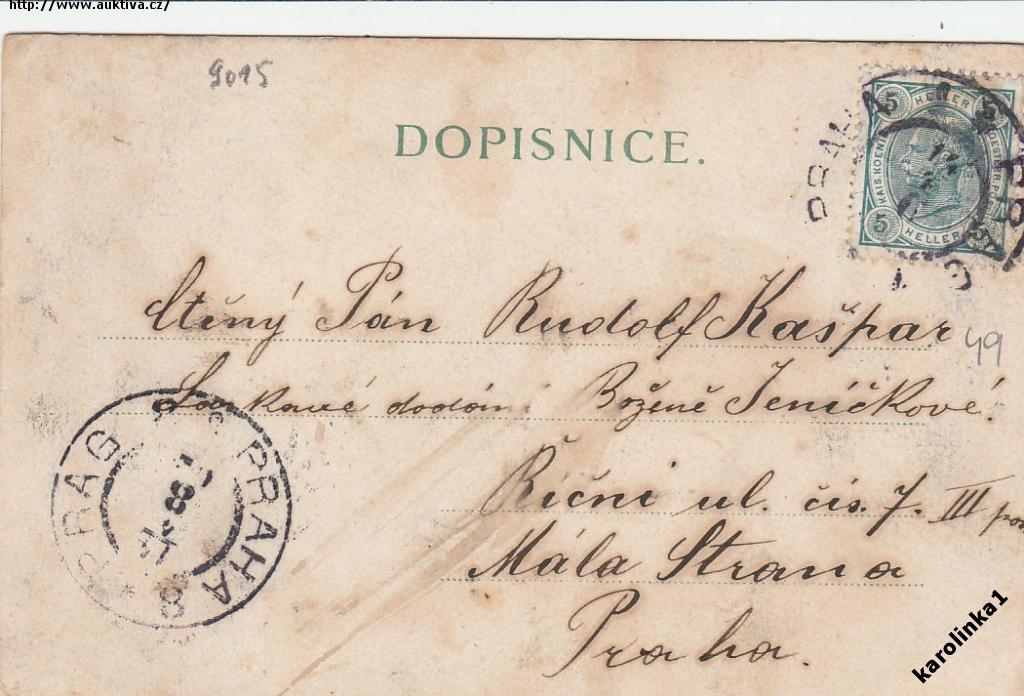 http://www.auktiva.cz/
9015
DOPISNICE.
5 HELLER 5
KAIS. KOENIGL. OESTERR. POST
5 HELLER 5
Ctěný Pán Rudolf Kašpar
49
Laskavé dodání Boženě Jeníčkové.
Říční ul. čís. 7. III
Mála Strana
Praha.
PRAG PRAHA 8
PRAHA
karolinka1